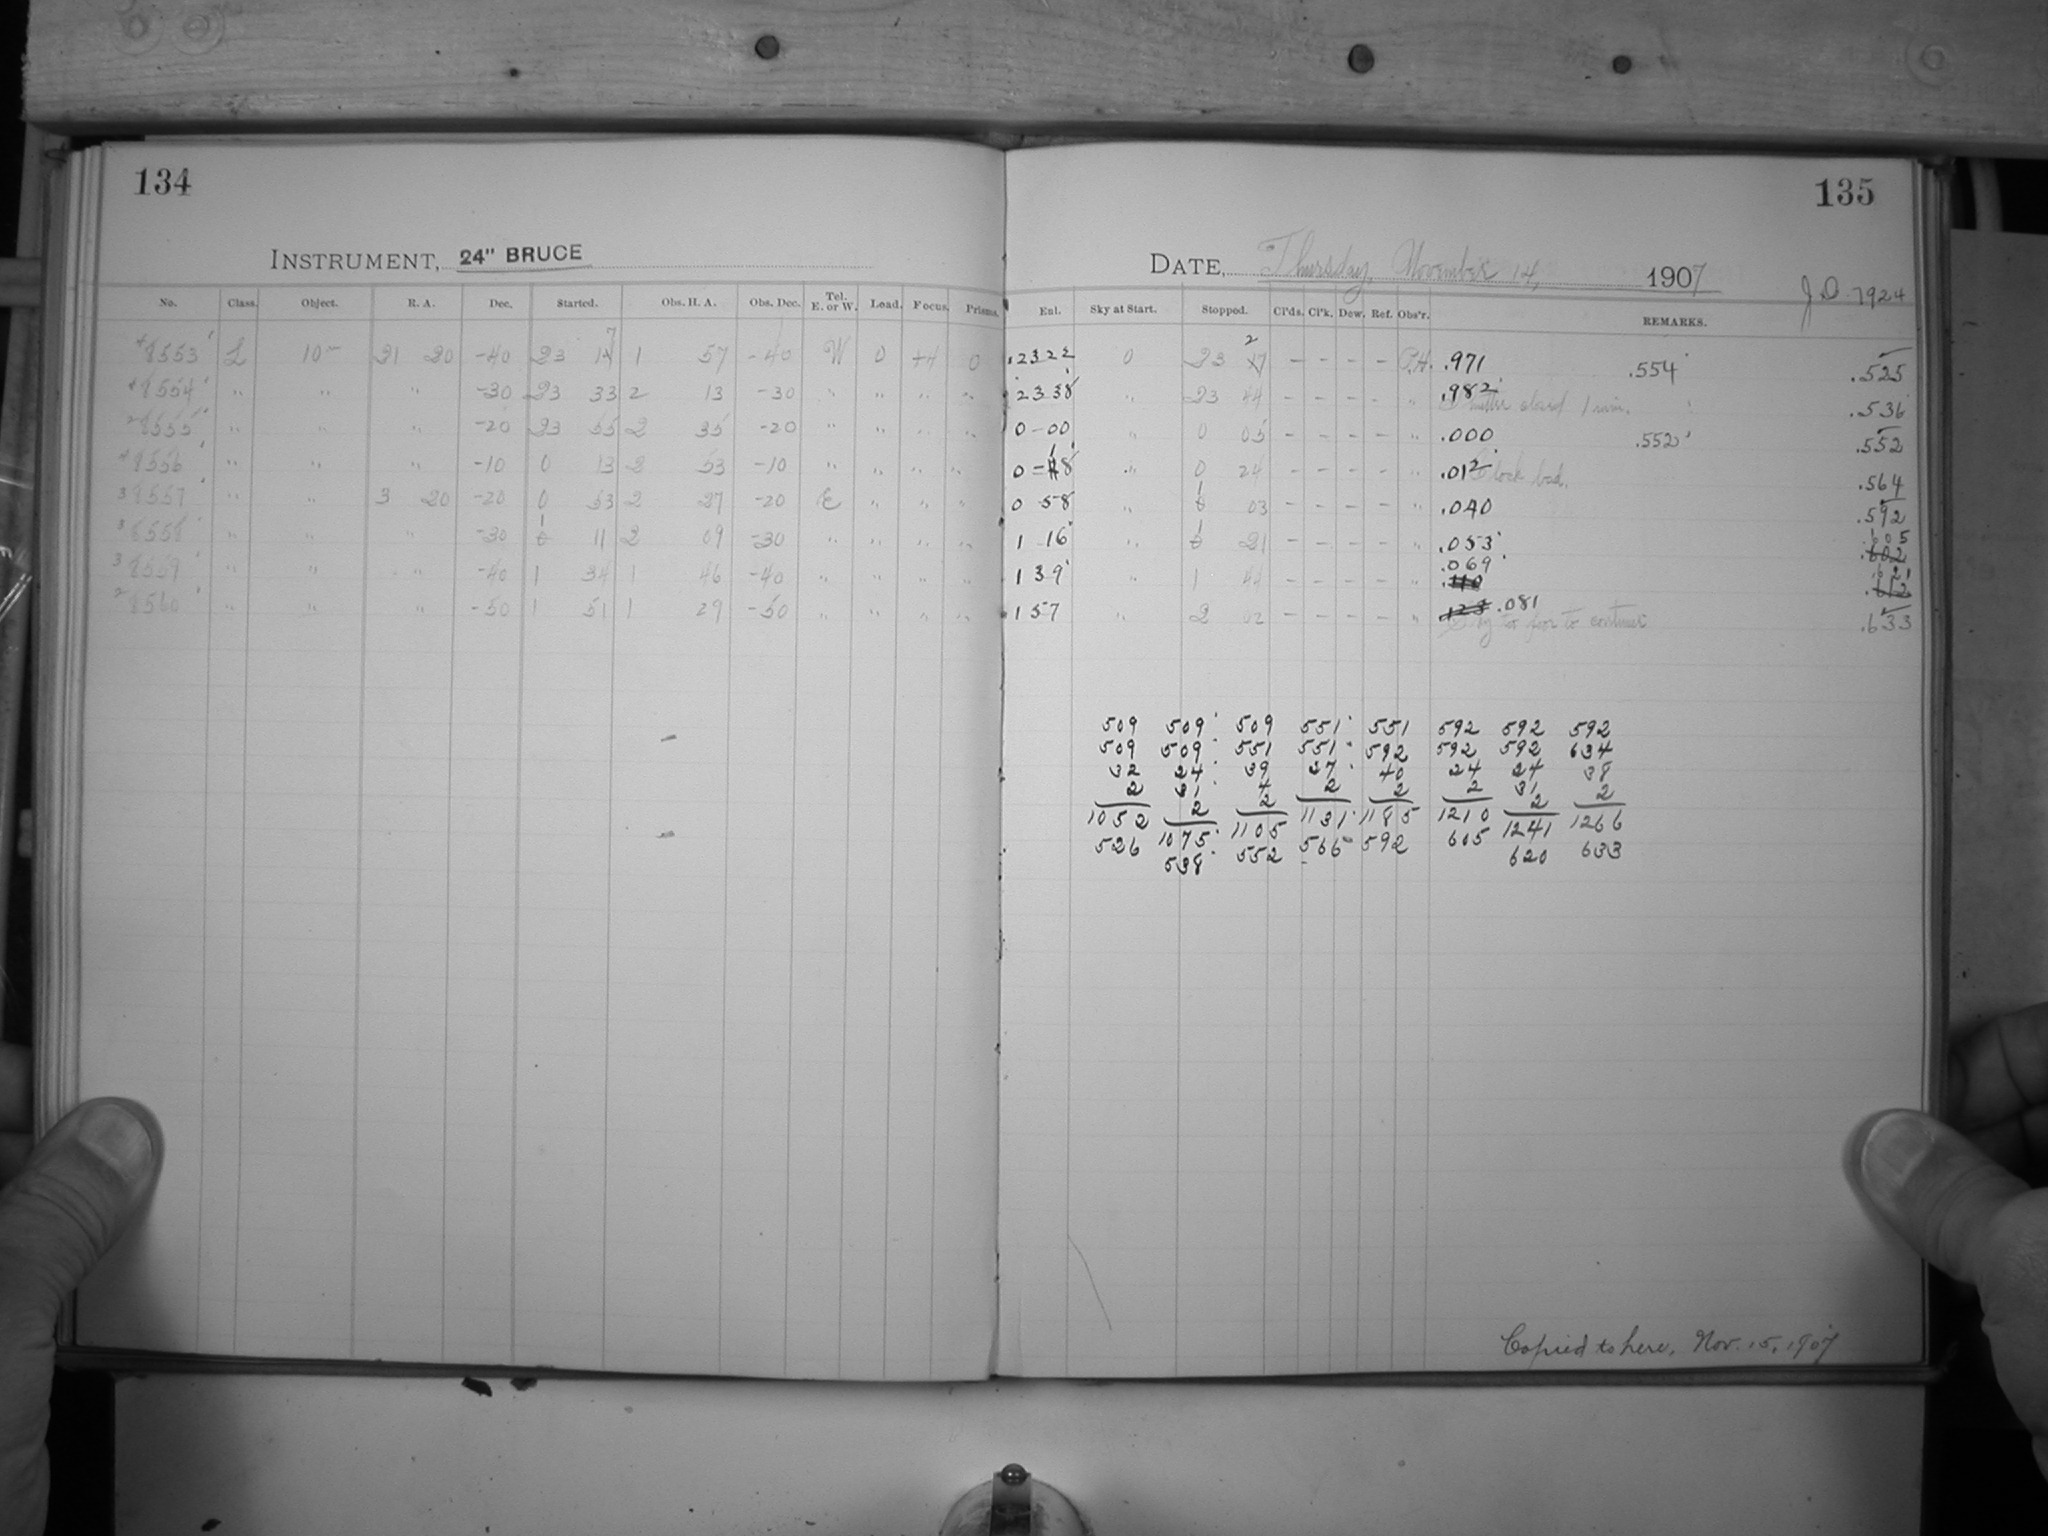 134
135
INSTRUMENT, 24" BRUCE
DATE, Thursday, November 14, 1907
J.D. 7924
No. Class. Object. R. A. Dec. Started. Obs. H. A. Obs. Dec. Tel. E. or W. Load. Focus. Prisms. Enl. Sky at Start. Stopped. Cl'ds. Cl'k. Dew. Ref. Obs'r. REMARKS.
8553 L 10m 21 20 -40 23 17 1 57 -40 W 0 +4 0 2322 0 23 2 — — — — P.H. .971 .554 .525
8554 " " " -30 23 33 2 13 -30 " " " " 2338 " 23 44 — — — — " .982 Shutter closed 1 min. .536
8555 " " " -20 23 55 2 35 -20 " " " " 0-00 " 0 05 — — — — " .000 .552 .552
8556 " " " -10 0 13 2 53 -10 " " " " 0-18 " 0 24 — — — — " .012 Clock bad. .564
8557 " " 3 20 -20 0 53 2 27 -20 E " " " 0 58 " 1 03 — — — — " .040 .592
8558 " " " -30 1 11 2 09 -30 " " " " 1 16 " 1 21 — — — — " .053 .605
.602
8559 " " " -40 1 34 1 46 -40 " " " " 1 39 " 1 44 — — — — " .069 .621
.110 .612
8560 " " " -50 1 51 1 29 -50 " " " " 1 57 " 2 02 — — — — " .123 .081 .633
Sky too poor to continue
509 509 509 551 551 592 592 592
509 509 551 551 592 592 592 634
32 24 39 27 40 24 24 38
2 31 4 2 2 2 31 2
1052 2 2 1131 1185 1210 2 1266
526 1075 1105 566 592 605 1241 633
538 552 620
Copied to here, Nov. 15, 1907